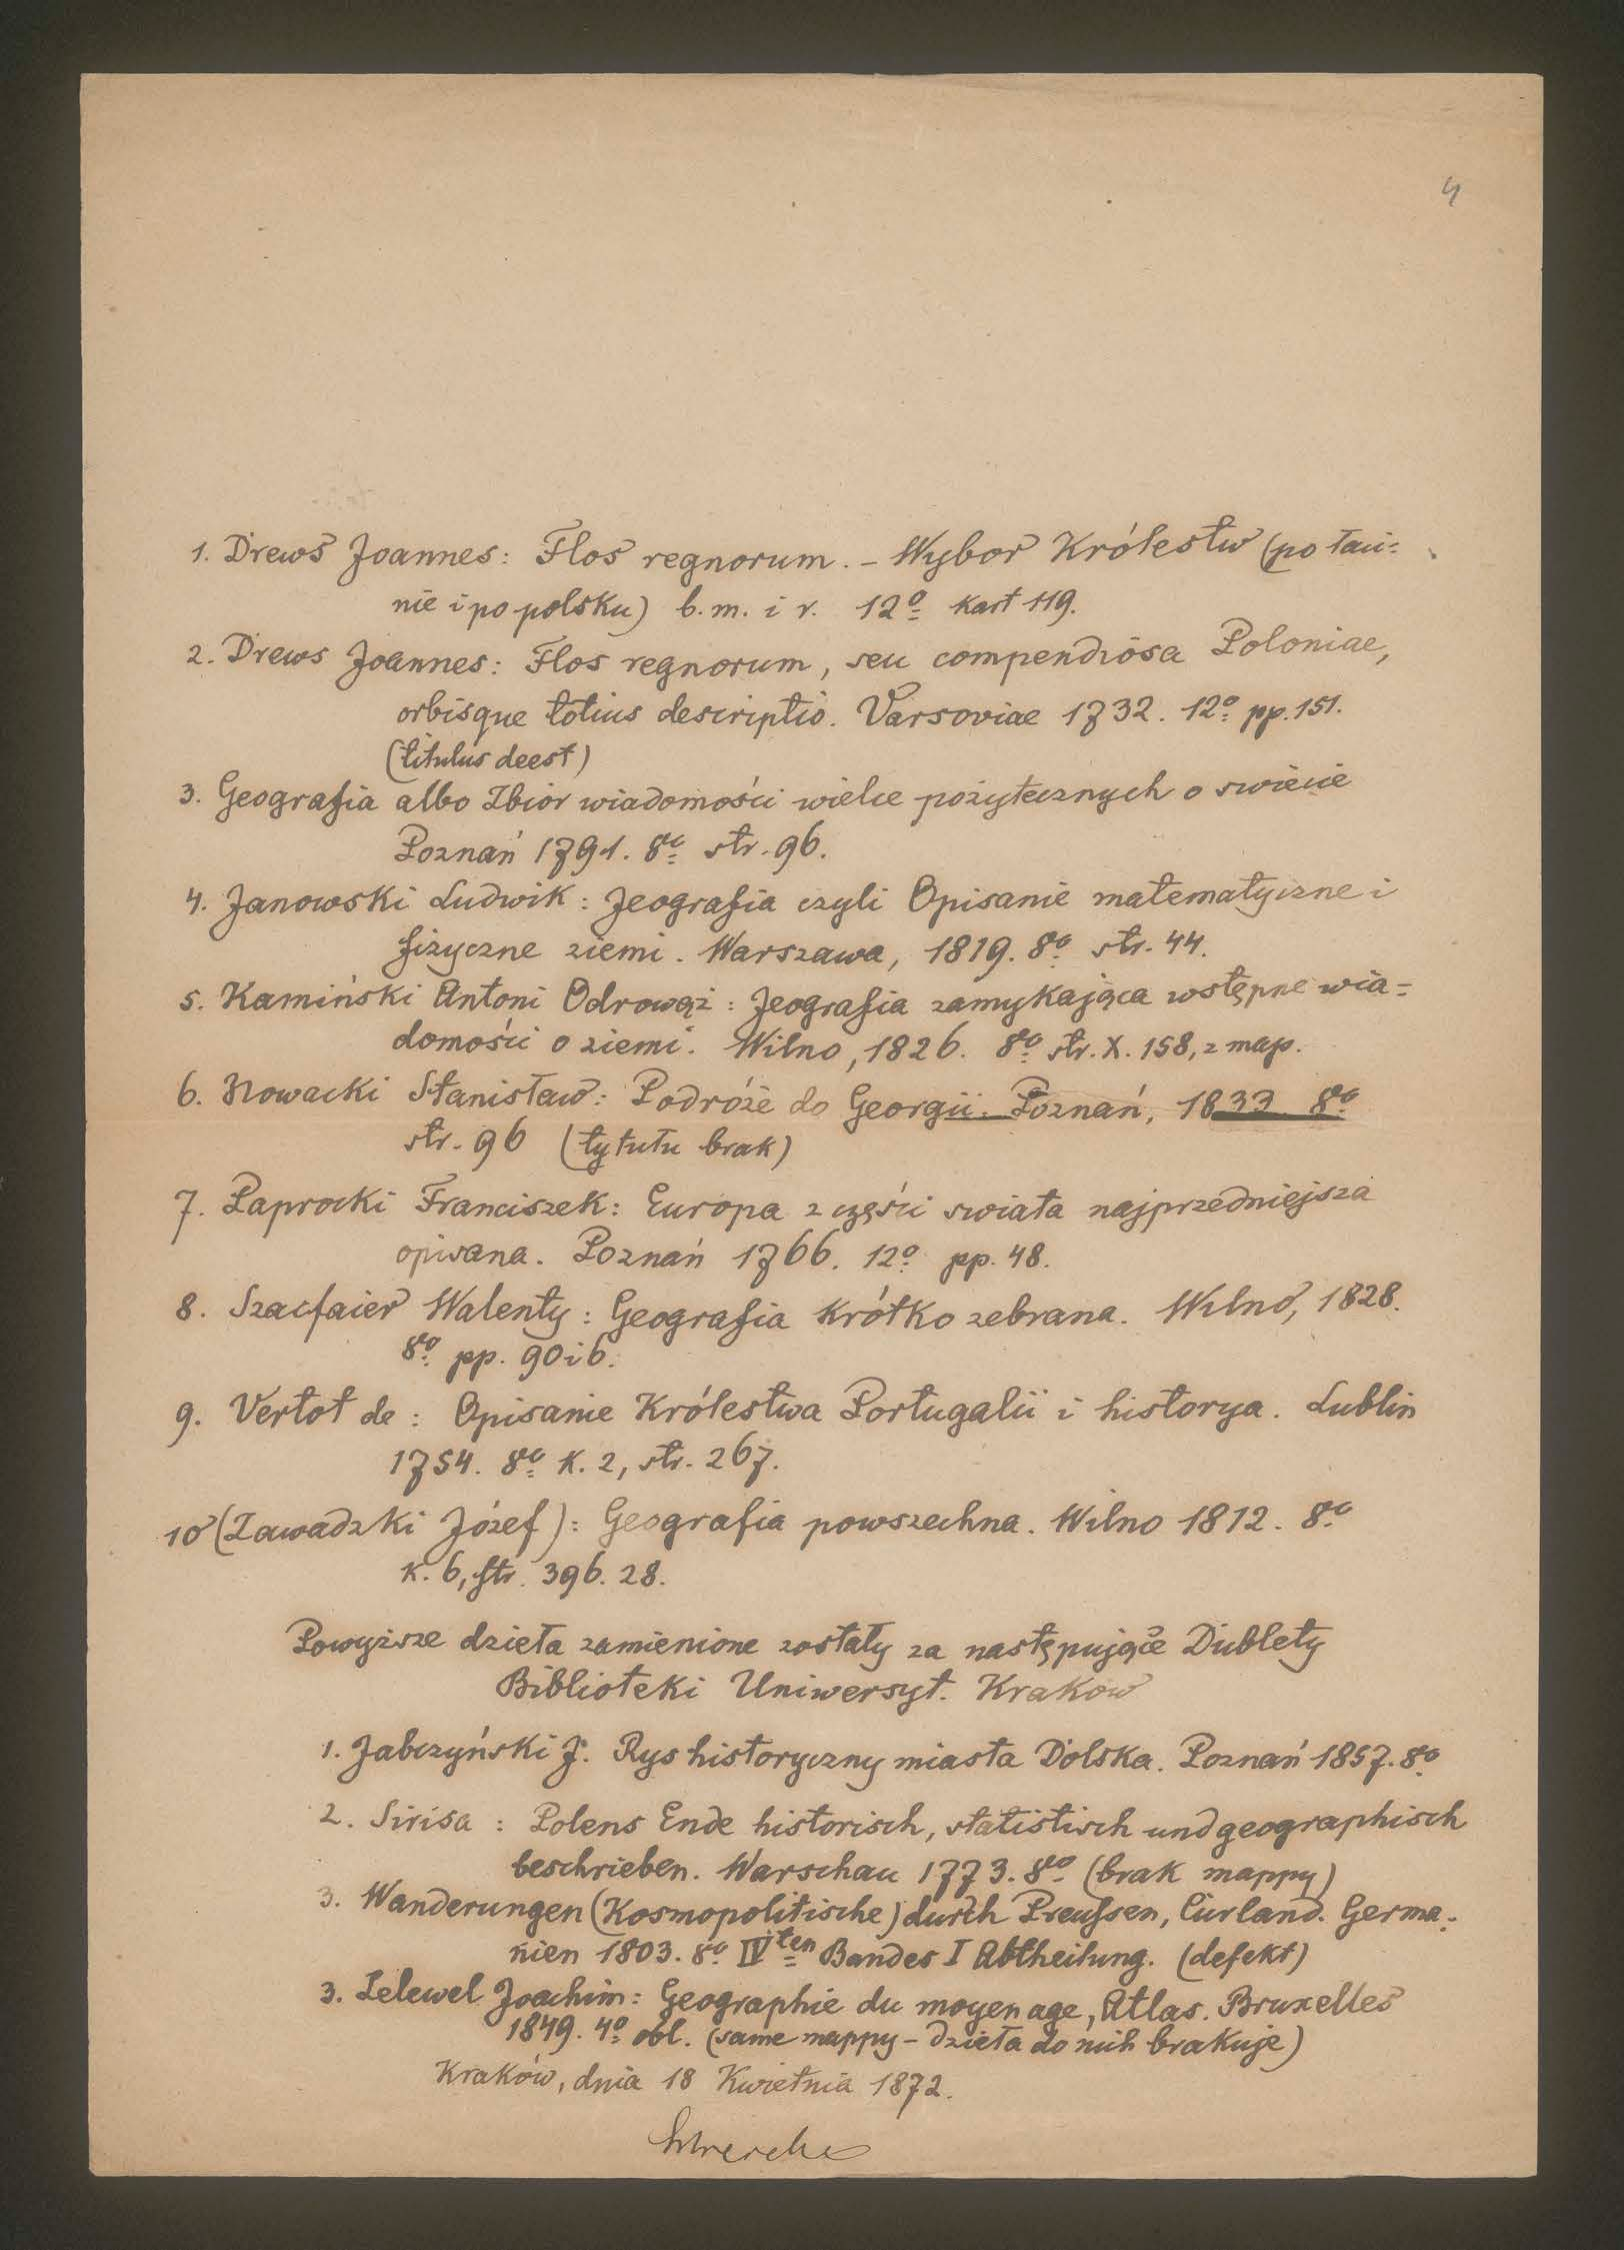 4
1. Drews Joannes: Flos regnorum. – Wybor Królestw (po łaci=
nie i po polsku) b. m. i r. 12o kart 119.
2. Drews Joannes: Flos regnorum, seu compendiosa Poloniae,
orbisque totius descriptio. Varsoviae 1732. 12o pp. 151.
(titulus deest)
3. Geografia albo Zbior wiadomości wielce pożytecznych o swiecie
Poznań 1791. 8o str. 96.
4. Janowski Ludwik: Jeografia czyli Opisanie matematyczne i
fizyczne ziemi. Warszawa, 1819. 8o str. 44.
5. Kamiński Antoni Odrowąż: Jeografia zamykająca wstępne wia=
domości o ziemi. Wilno, 1826. 8o str. X. 158, z map.
6. Nowacki Stanisław: Podróże do Georgii. Poznań, 1833 8o
str. 96 (tytułu brak)
7. Paprocki Franciszek: Europa z części swiata najprzedniejsza
opisana. Poznań 1766. 12o pp. 48.
8. Szacfaier Walenty: Geografia krótko zebrana. Wilno, 1828.
8o pp. 90 i 6.
9. Vertot de: Opisanie Królestwa Portugalii i historya. Lublin
1754. 8o k. 2, str. 267.
10 (Zawadzki Józef): Geografia powszechna. Wilno 1812. 8o
k. 6, str. 396. 28.
Powyższe dzieła zamienione zostały za następujące Dublety
Biblioteki Uniwersyt. Krakow
1. Jabczyński J. Rys historyczny miasta Dolska. Poznań 1857. 8o
2. Sirisa: Polens Ende historisch, statistisch und geographisch
beschrieben. Warschau 1773. 8o (brak mappy)
3. Wanderungen (Kosmopolitische) durch Preussen, Curland. Germa=
nien 1803. 8o IVten Bandes I Abtheilung. (defekt)
3. Lelewel Joachim: Geographie du moyen age, Atlas. Bruxelles
1849. 4o obl. (same mappy – dzieła do nich brakuje)
Kraków, dnia 18 Kwietnia 1872.